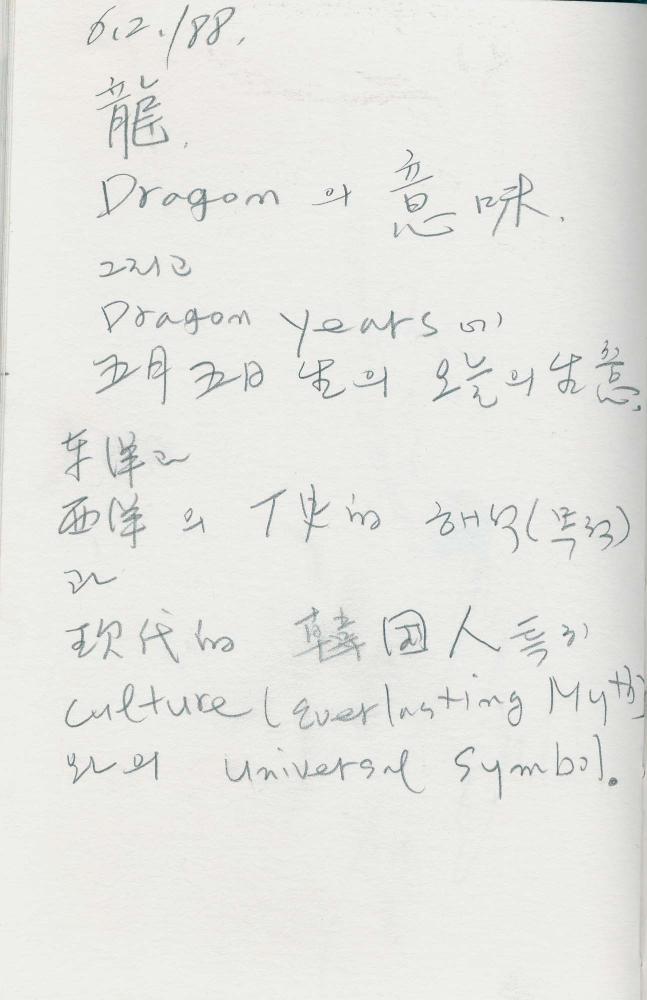 6.2./88.
龍.
Dragon의 意味.
그리고
Dragon years에
五月五日 生의 오늘의 生意.
东洋과
西洋의 丁史的 해석(목적)
과
现代的 韓国人 특히
culture (Everlasting Myth)
와의 universal symbol.